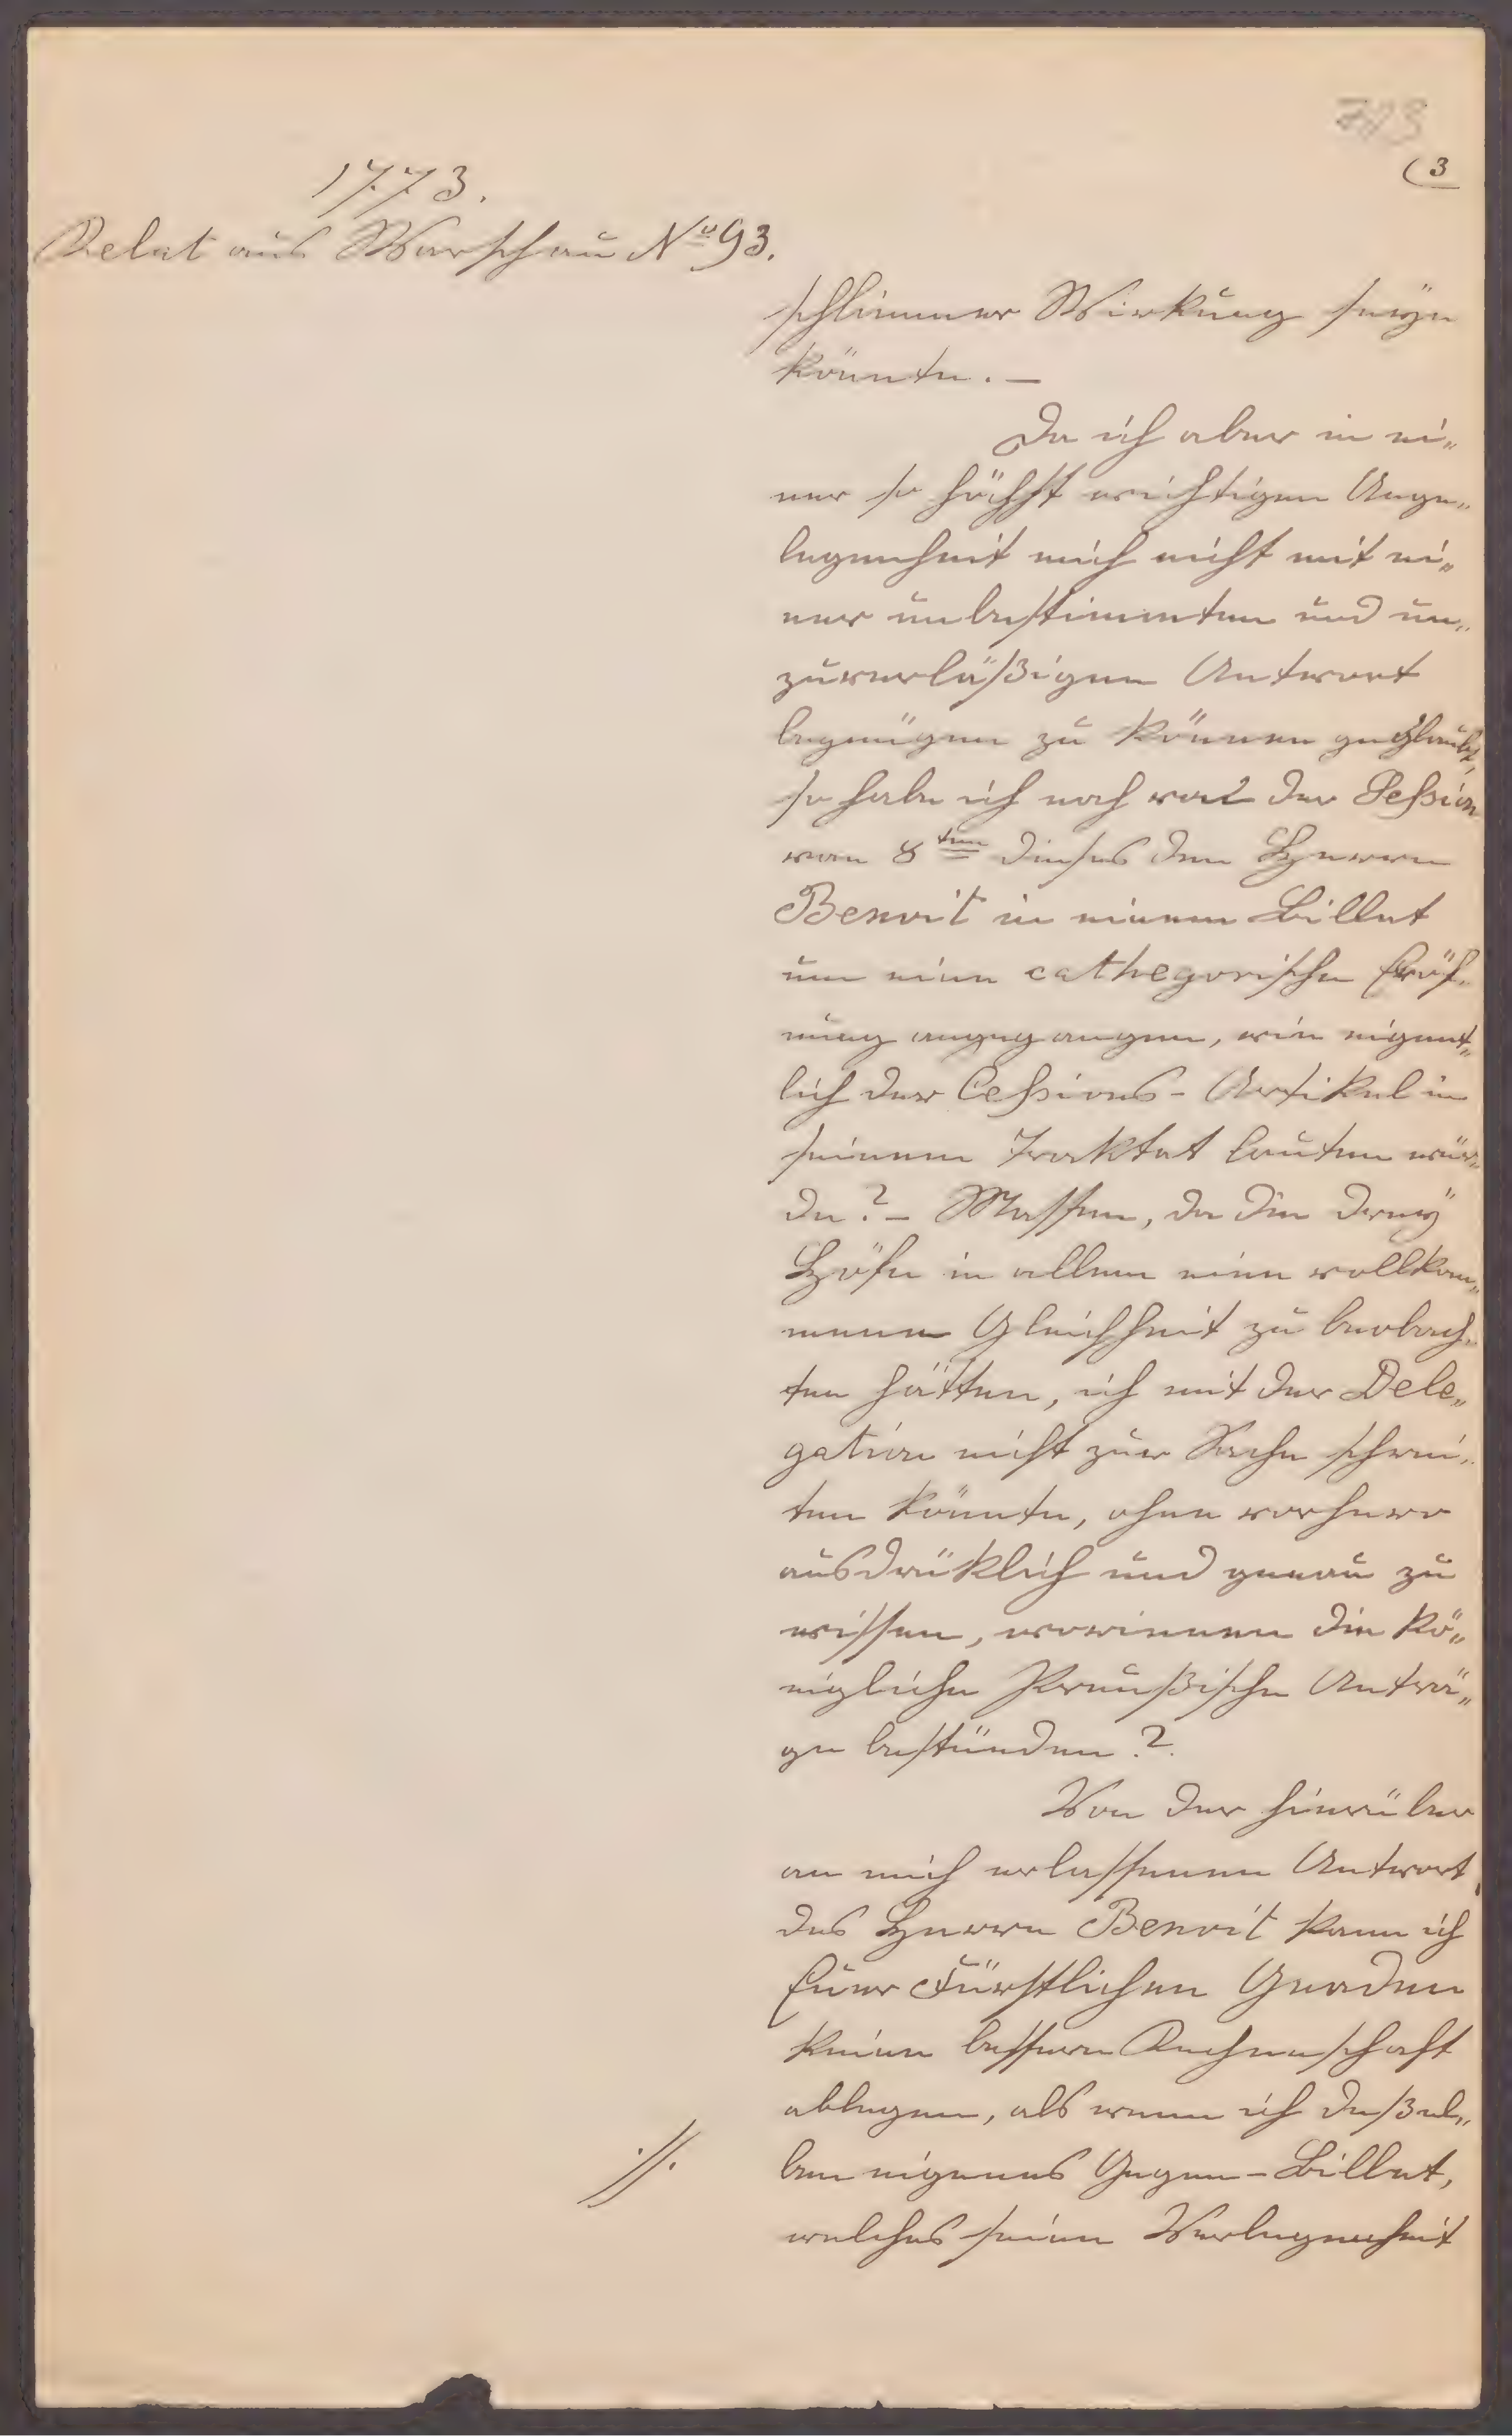 (3
1773.
Relat aus Warschau No 93.
schlimmer Wirkung seÿn
könnte. —
Da ich aber in ei„
ner so höchst wichtigen Ange„
legenheit mich nicht mit ei„
ner unbestimmten und un„
zuverläßigen Antwort
begnügen zu können geglaubt,
so habe ich noch vor der Seßion
von 8ten dieses den Herrn
Benoit in einem Billet
um eine cathegorische Eröf„
nung angegangen, wie eigent„
lich der Ceßions-Artikel in
seinem Traktat lauten wür„
de? — Massen, da die dreÿ
Höfe in allem eine vollkom„
mene Gleichheit zu beobach„
ten hätten, ich mit der Dele„
gation nicht zur Sache schrei„
ten könnte, ohne vorhero
ausdrüklich und genau zu
wissen, worinnen die kö„
nigliche Preußische Anträ„
ge bestünden?
Von der hierüber
an mich erlassenen Antwort
des Herrn Benoit kann ich
Euer Fürstlichen Gnaden
keine bessere Rechenschaft
ablegen, als wenn ich deßel„
ben eigenes Gegen-Billet,
·//.
welches seine Verlegenheit